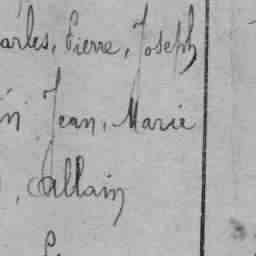 arles, Pierre, Joseph
in Jean, Marie
, Allain